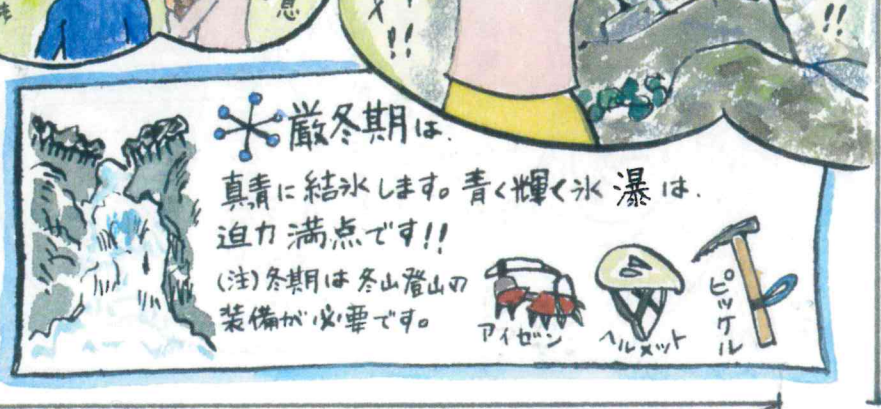 息
!!
!!
厳冬期は、
真青に結氷します。青く輝く氷瀑は、
迫力満点です!!
(注)冬期は冬山登山の
装備が必要です。
アイゼン
ヘルメット
ピッケル